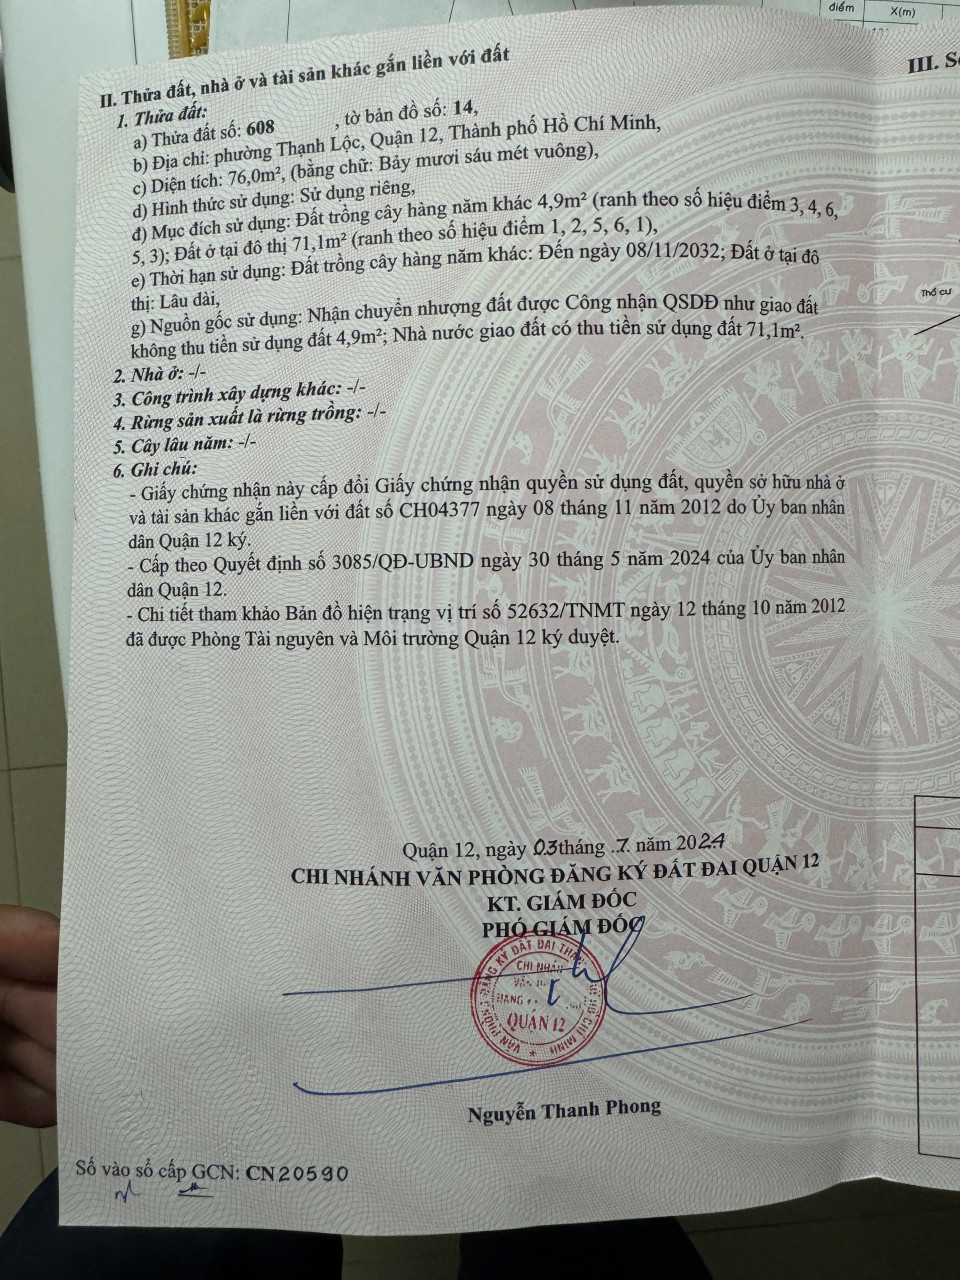 điểm
X(m)
II. Thửa đất, nhà ở và tài sản khác gắn liền với đất
III. S
1. Thửa đất:
a) Thửa đất số: 608 , tờ bản đồ số: 14,
b) Địa chỉ: phường Thạnh Lộc, Quận 12, Thành phố Hồ Chí Minh,
c) Diện tích: 76,0m², (bằng chữ: Bảy mươi sáu mét vuông),
d) Hình thức sử dụng: Sử dụng riêng,
đ) Mục đích sử dụng: Đất trồng cây hàng năm khác 4,9m² (ranh theo số hiệu điểm 3, 4, 6,
5, 3); Đất ở tại đô thị 71,1m² (ranh theo số hiệu điểm 1, 2, 5, 6, 1),
e) Thời hạn sử dụng: Đất trồng cây hàng năm khác: Đến ngày 08/11/2032; Đất ở tại đô
thị: Lâu dài,
g) Nguồn gốc sử dụng: Nhận chuyển nhượng đất được Công nhận QSDĐ như giao đất
không thu tiền sử dụng đất 4,9m²; Nhà nước giao đất có thu tiền sử dụng đất 71,1m².
Thổ cư
2. Nhà ở: -/-
3. Công trình xây dựng khác: -/-
4. Rừng sản xuất là rừng trồng: -/-
5. Cây lâu năm: -/-
6. Ghi chú:
- Giấy chứng nhận này cấp đổi Giấy chứng nhận quyền sử dụng đất, quyền sở hữu nhà ở
và tài sản khác gắn liền với đất số CH04377 ngày 08 tháng 11 năm 2012 do Ủy ban nhân
dân Quận 12 ký.
- Cấp theo Quyết định số 3085/QĐ-UBND ngày 30 tháng 5 năm 2024 của Ủy ban nhân
dân Quận 12.
- Chi tiết tham khảo Bản đồ hiện trạng vị trí số 52632/TNMT ngày 12 tháng 10 năm 2012
đã được Phòng Tài nguyên và Môi trường Quận 12 ký duyệt.
Quận 12, ngày 03 tháng .7. năm 2024
CHI NHÁNH VĂN PHÒNG ĐĂNG KÝ ĐẤT ĐAI QUẬN 12
KT. GIÁM ĐỐC
PHÓ GIÁM ĐỐC
CHI NHÁN
QUẬN 12
Nguyễn Thanh Phong
Số vào sổ cấp GCN: CN20590